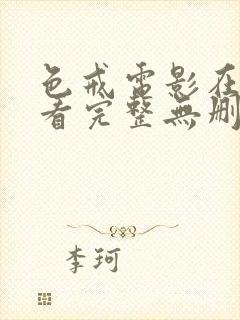 色戒電影在
看完整無刪
李珂